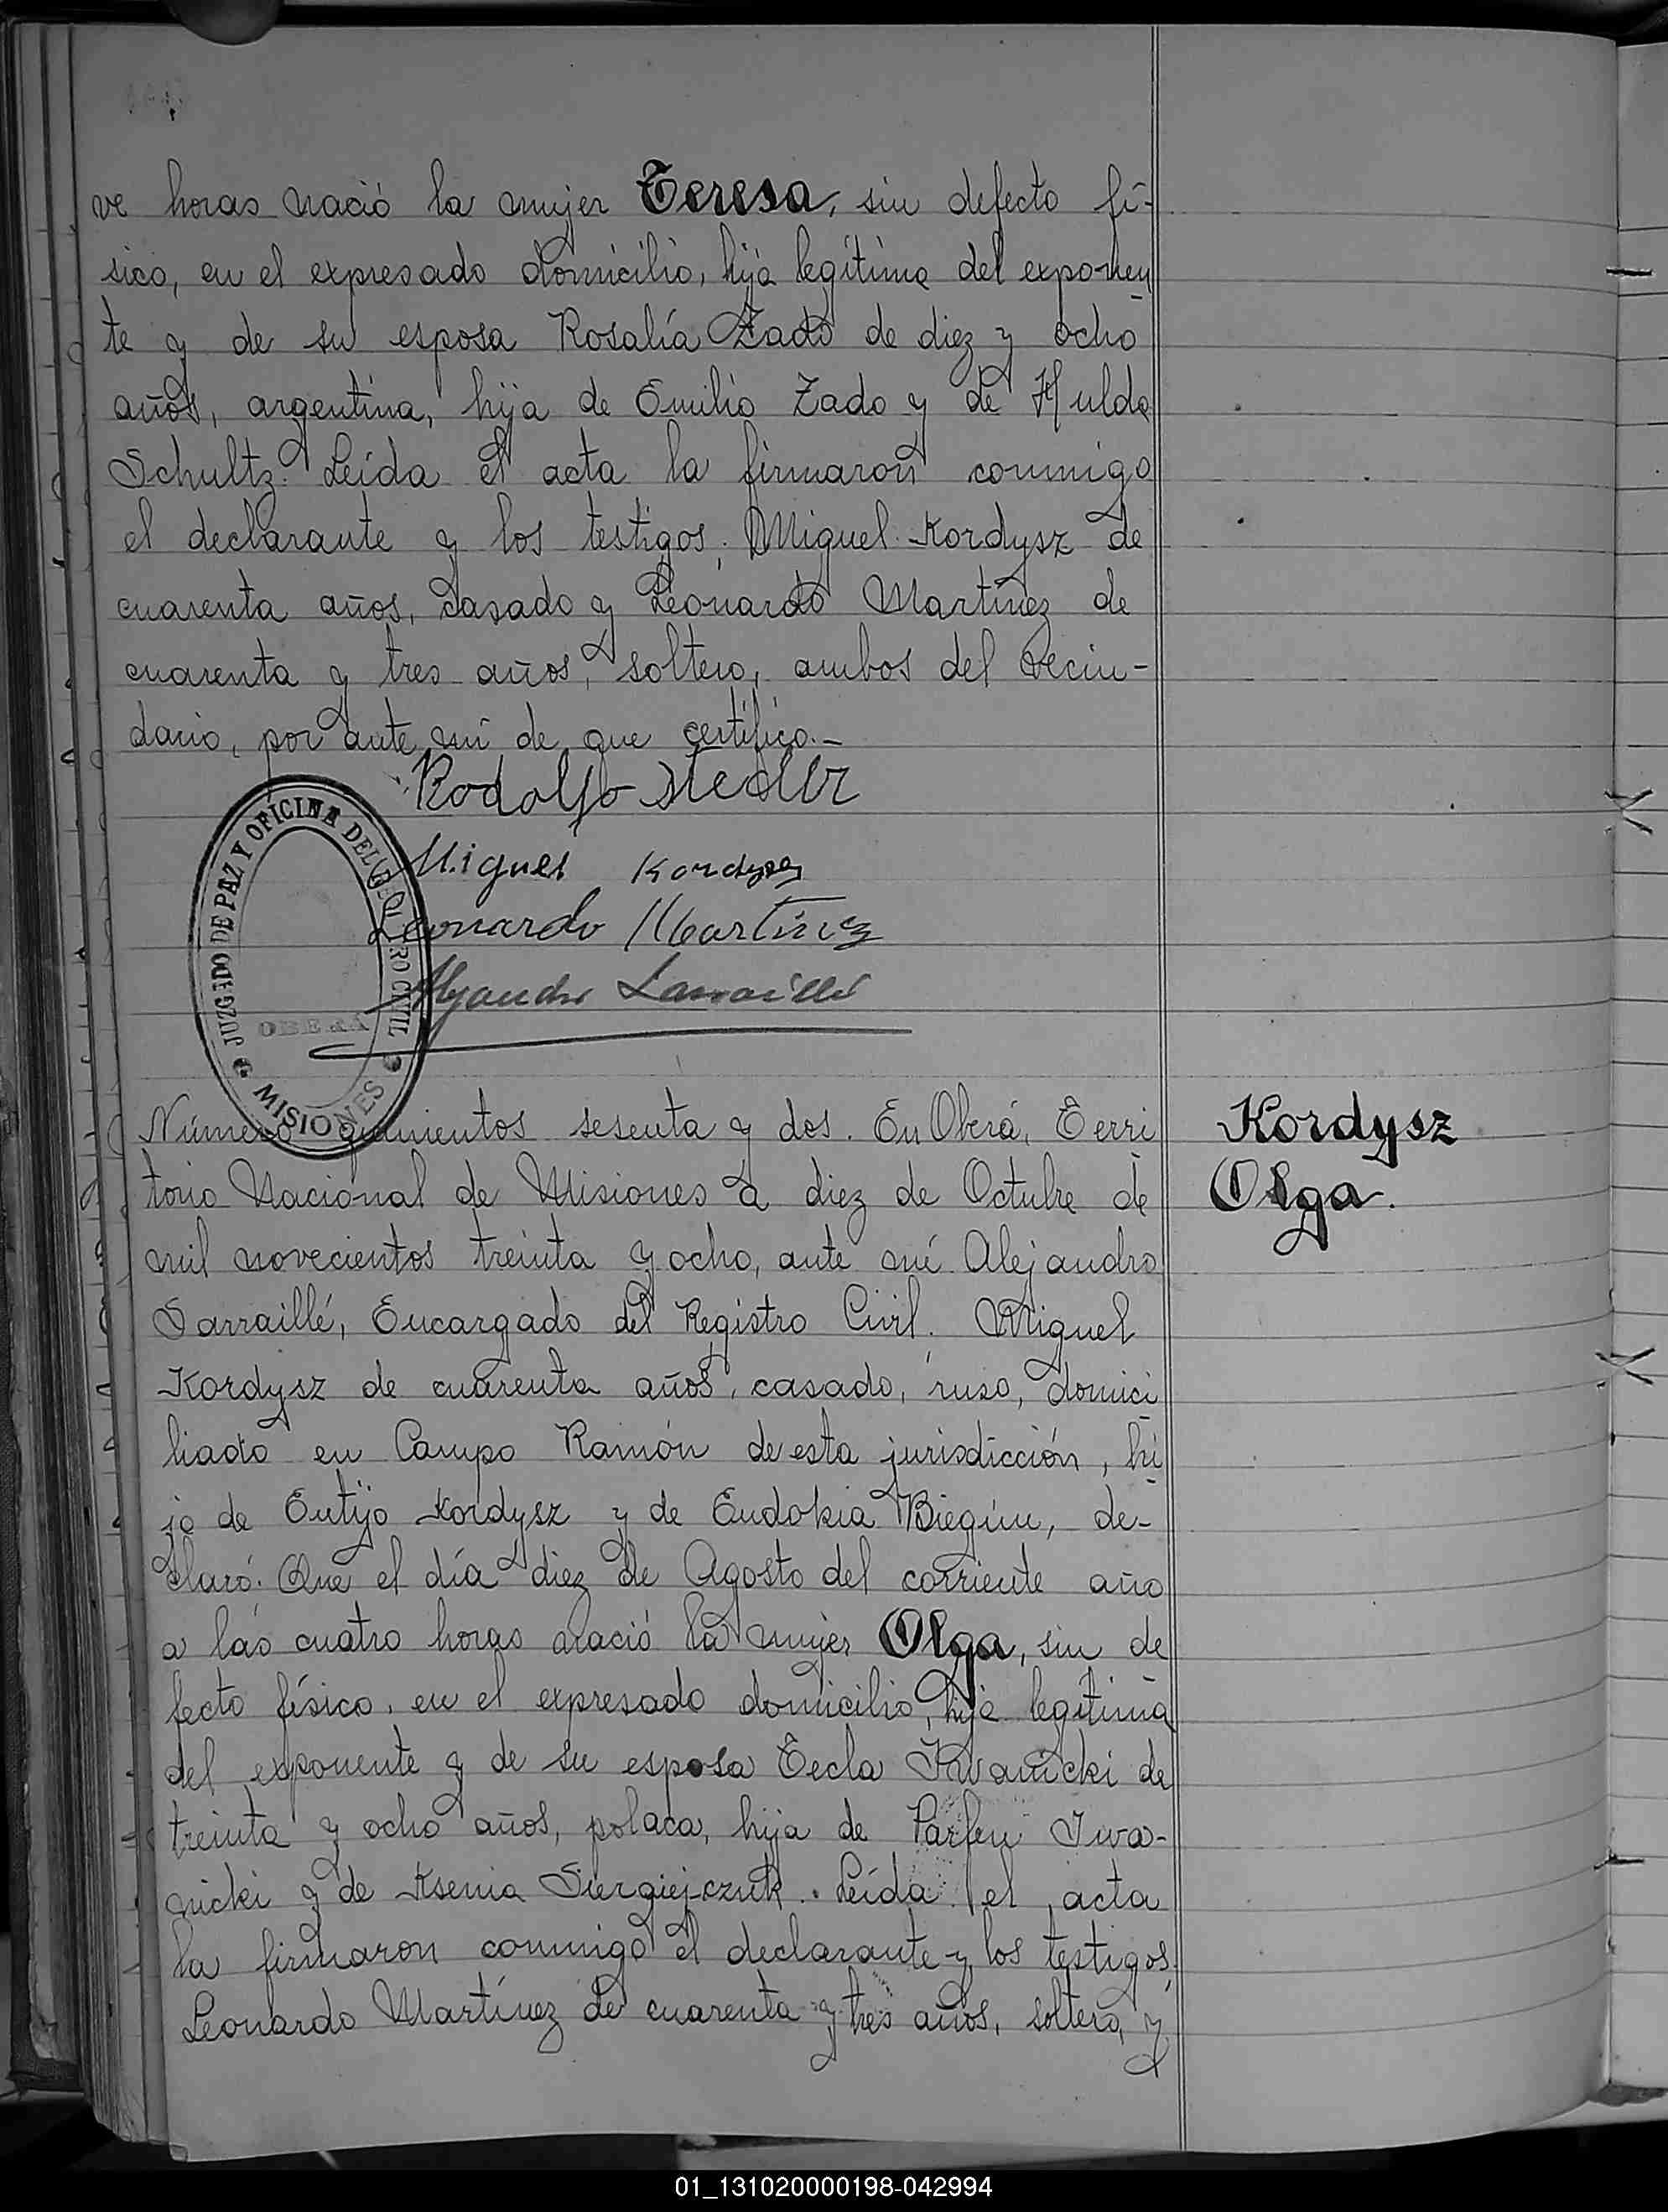 ve horas nació la mujer Teresa, sin defecto fí-
sico, en el expresado domicilio, hija legítima del exponen
te y de su esposa Rosalía Zado de diez y ocho
años, argentina, hija de Emilio Zado y de Hulda
Schultz. Leída el acta la firmaron conmigo
el declarante y los testigos: Miguel Kordysz de
cuarenta años, casado y Leonardo Martínez de
cuarenta y tres años, soltero, ambos del vecin-
dario, por ante mí de que certifico.-
Rodolfo
Miguel Kordysz
Leonardo Martínez
Alejandro Sarraillé
JUZGADO DE PAZ Y OFICINA DEL REGISTRO CIVIL
OBERÁ
MISIONES
Número quinientos sesenta y dos. En Oberá, Terri
torio Nacional de Misiones a diez de Octubre de
mil novecientos treinta y ocho, ante mí Alejandro
Sarraillé, Encargado del Registro Civil. Miguel
Kordysz de cuarenta años, casado, ruso, domici
liado en Campo Ramón de esta jurisdicción, hi
jo de Eutijo Kordysz y de Eudokia Biegun, de-
claró: Que el día diez de Agosto del corriente año
a las cuatro horas nació la mujer Olga, sin de
fecto físico, en el expresado domicilio, hija legítima
del exponente y de su esposa Tecla Iwanicki de
treinta y ocho años, polaca, hija de Parfen Iwa-
nicki y de Ksenia Siergiejczuk. Leída el acta
la firmaron conmigo el declarante y los testigos:
Leonardo Martínez de cuarenta y tres años, soltero, y
Kordysz
Olga.
01_131020000198-042994